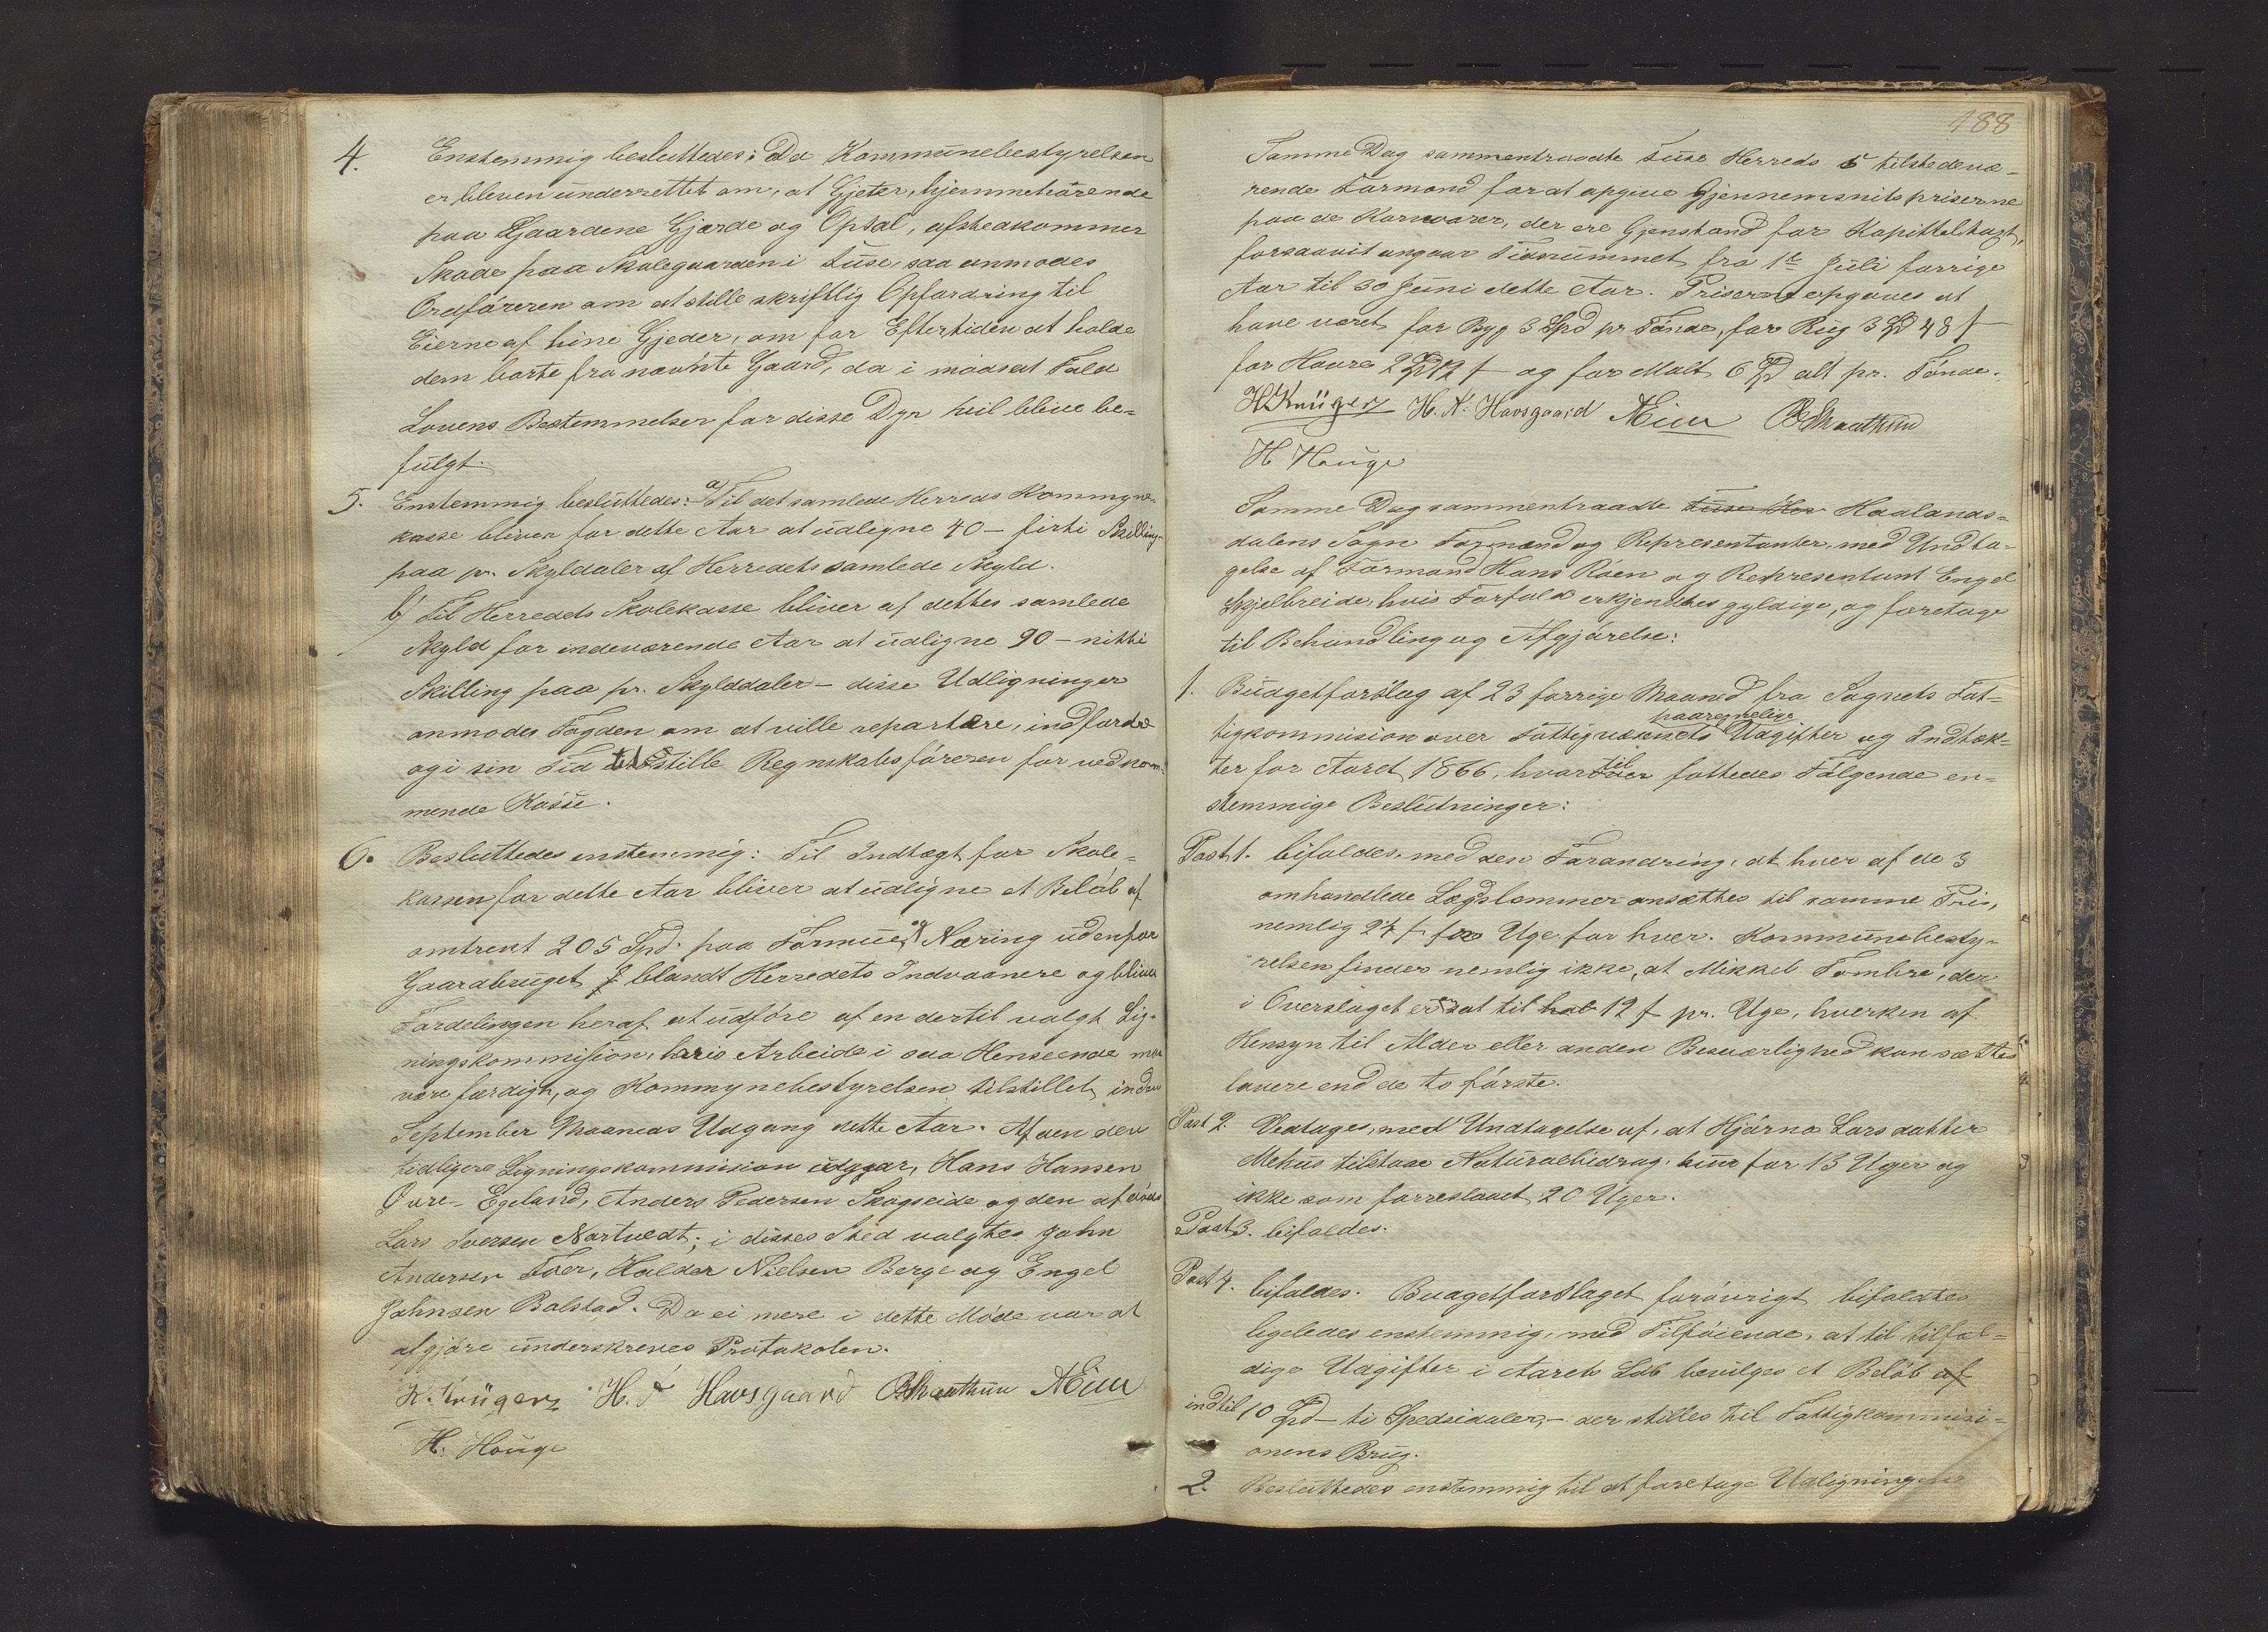 4. Enstemmig besluttedes: Da Kommunebestyrelsen
er bleven underrettet om, at Gjeter, hjemmehörende
paa Gaardene Gjærde og Opsal, afstedkommer
Skade paa Skolegaarden i Fuse, saa anmodes
Ordföreren om at stille skriftlig Opfordring til
Eierne af hine Gjeder, om for Eftertiden at holde
dem borte fra nævnte Gaard, da i modsat Fald
Lovens Bestemmelser for disse Dyr vil blive be-
fulgt.
5. Enstemmig besluttedes: a) Til det samlede Herreds Kommyne-
kasse bliver for dette Aar at udligne 40 - firti Skilling
paa pr. Skyldaler af Herredets samlede Skyld.
b) Til Herredets Skolekasse bliver af dettes samlede
Skyld for indeværende Aar at udligne 90 - nitti
Skilling paa pr. Skylddaler - disse Udligninger
anmodes Fogden om at ville repartere, indfordre
og i sin Tid tilstille Regnskabsföreren for vedkom-
mende Kasse.
6. Besluttedes enstemmig: Til Indtægt for Skole-
kassen for dette Aar bliver at udligne et Belöb af
omtrent 205 Spd. paa Formue og Næring udenfor
Gaardbruget blandt Herredets Indvaanere og bliver
Fordelingen heraf at udföre af en dertil valgt Lig-
ningskommission, hvis Arbeide i saa Henseende maa
være færdigt, og Kommynebestyrelsen tilstillet inden
September Maaneds Udgang dette Aar. Af den den
tidligere Ligningskommission udgaar, Hans Hansen
Övre-Egeland, Anders Pedersen Skogseide og den afdöde
Lars Iversen Nortvedt; i disses Sted valgtes John
Andersen Tver, Haldor Nielsen Berge og Engel
Johnsen Bolstad. Da ei mere i dette Möde var at
afgjöre underskreves Protokolen.
H. Krüger H. N. Havsgaard AEim
H. Houge
188
Samme Dag sammentraadte Fuse Herreds 5 tilstedevæ-
rende Formænd for at opgive Gjennemsnitspriserne
paa de Kornvarer, der ere Gjenstand for Kapittelstaxt,
forsaavit angaar Tidsrummet fra 1te Juli forrige
Aar til 30 Juni dette Aar. Priserne opgaves at
have været for Byg 3 Spd pr Tönde, for Rug 3 Spd 48 ſ
for Havre 2 Spd 12 ſ og for Malt 6 Spd alt pr. Tönde.
H Krüger H. N. Havsgaard AEim
H Houge
Samme Dag sammentraadte Fuse Her Haalands-
dalens Sogn Formænd og Representanter, med Undta-
gelse af Formand Hans Röen og Representant Engel
Skjelbreide, hvis Forfald erkjendtes gyldige, og foretoge
til Behandling og Afgjörelse:
1. Budgetforslag af 23 forrige Maaned fra Sognets Fat-
tigkommision over Fattigvæsnets paaregnelige Udgifter og Indtæk-
ter for Aaret 1866, hvortil fattedes Fölgende en-
stemmige Beslutninger:
Post 1. bifaldes. med den Forandring, at hver af de 3
omhandlede Lægdslemmer ansættes til samme Pris,
nemlig 24 ſ pr Uge for hver. Kommunebesty-
relsen finder nemlig ikke, at Mikkel Tombre, der
i Overslaget er sat til 12 ſ pr. Uge, hverken af
Hensyn til Alder eller anden Besværlighed kan sættes
lavere end de to förste.
Post 2. Vedtages, med Undtagelse af, at Hjörna Larsdatter
Mehus tilstaaes Naturalbidrag kun for 13 Uger og
ikke som foreslaaet 20 Uger.
Post 3. bifaldes.
Post 4. bifaldes. Budgetforslaget forövrigt bifaldtes
ligeledes enstemmig, med Tilföiende, at til tilfæl-
dige Udgifter i Aarets Löb bevilges et Belöb af
indtil 10 Spd - ti Spedsidaler, - der stilles til Fattigkommisi-
onens Brug.
2. Besluttedes enstemmig til at foretage Udligningen